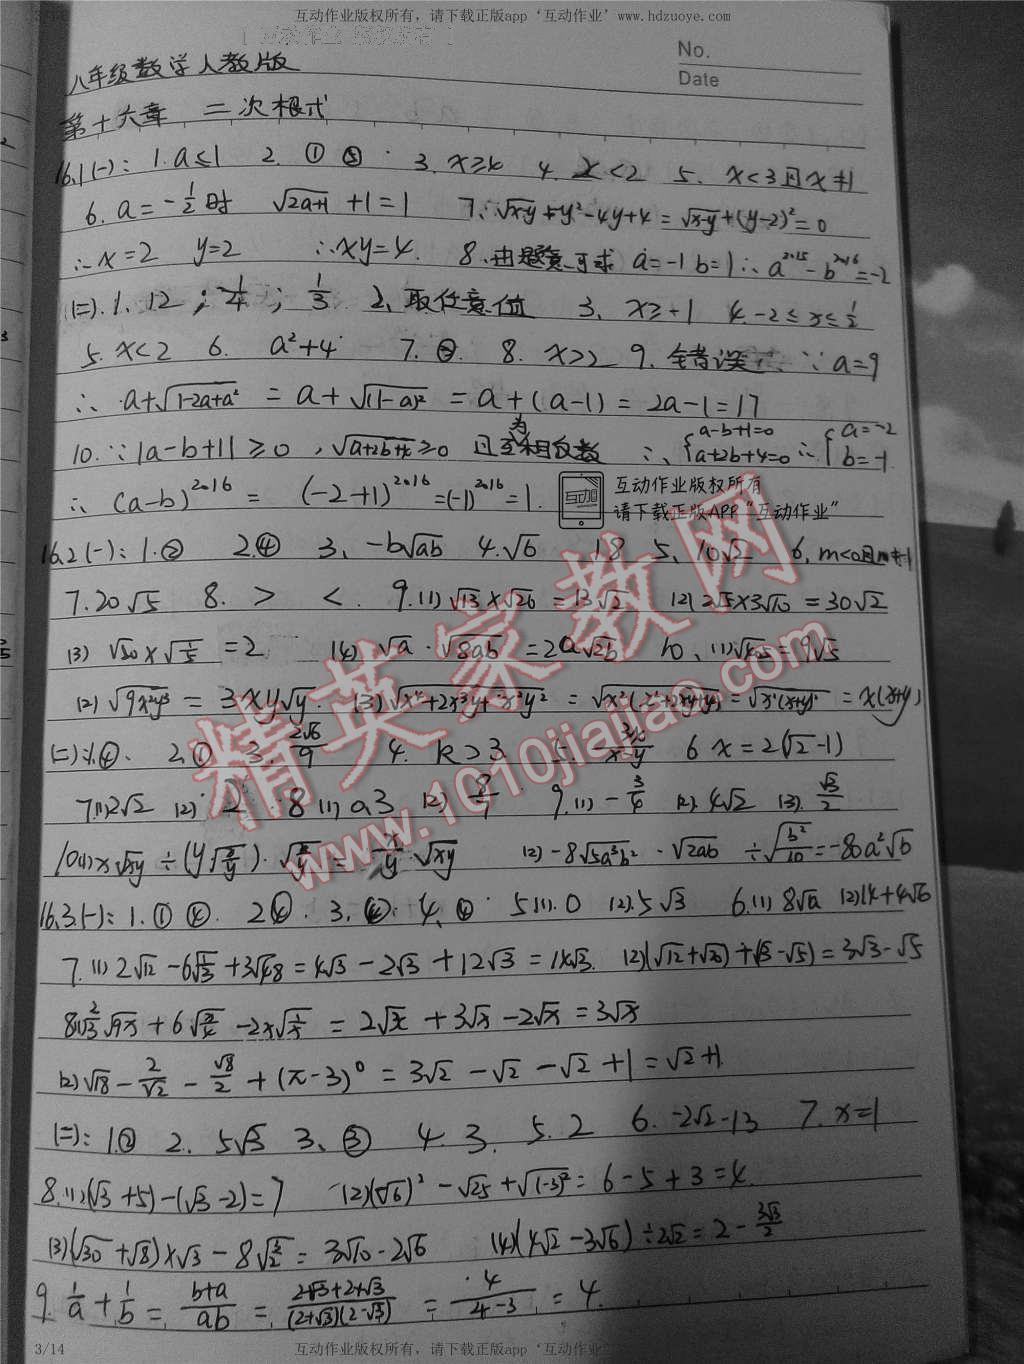 互动作业版权所有，请下载正版app‘互动作业’www.hdzuoye.com
No.
Date
八年级数学人教版
第十六章 二次根式
16.1(一): 1. a≤1 2. ① ⑤ 3. x≥4. x<2 5. x<3且x≠1
6. a=-1/2时 √(2a+1) +1=1 7.∵√(x-y)+y²-4y+4=√(x-y)+(y-2)²=0
∴x=2 y=2 ∴xy=4. 8.由题意可求 a=-1 b=1∴a^2015-b^2016=-2
(二).1. 12 ; 1/4 ; 1/3 2、取任意值 3、x≥-1 4.-2≤x≤1/2
5. x<2 6. a²+4 7. ② 8. x>2 9. 错误 ∵a=9
∴ a+√(1-2a+a²) = a+√((1-a)²) = a+(a-1) = 2a-1=17
10.∵|a-b+1|≥0 ,√(a+2b+4)≥0 且互为相反数 ∴{a-b+1=0 a+2b+4=0 ∴{a=-2 b=-1
∴ (a-b)^2016 = (-2+1)^2016=(-1)^2016=1.
互动作业版权所有
请下载正版APP“互动作业”
16.2(一): 1.② 2.④ 3、-b√ab 4.√6 18 5、10√2 6, m<0且m≠-1
7. 20√5 8. > < 9.(1)√13×√26=13√2 (2) 2√5×3√10=30√2
(3) √20×√(1/5)=2 (4)√a·√8ab=2a√2b 10、(1)√405=9√5
(2)√(9x²y³)=3xy√y (3)√(x⁴+2x³y+x²y²)=√(x²(x²+2xy+y²))=√(x²(x+y)²)=x(x+y)
(二) 1.④ 2.① 3. 2√6/9 4. k>3 6 x=2(√2-1)
7(1)2√2 (2) 2 8(1) a3 9.(1)-3/4 (2).4√2 (3).√3/2
10(1)x√xy÷(y√(x/y)) (2)-8√(5a³b²)·√2ab÷√(b²/10)=-80a²√b
16.3(一): 1.①④ 2④ 3.④ 4.④ 5(1).0 (2).5√3 6.(1)8√a (2)14+4√6
7.(1)2√12-6√(1/3)+3√48=4√3-2√3+12√3=14√3 (2)(√12+√20)+(√3-√5)=3√3-√5
8(1)2/3√9x+6√(x/4)-2x√(1/x)=2√x+3√x-2√x=3√x
(2)√18-2/√2-√8/2+(π-3)⁰=3√2-√2-√2+1=√2+1
(二): 1② 2. 5√3 3、③ 4. 3. 5. 2 6.-2√2-13 7.x=1
8.(1)(√3+5)-(√3-2)=7 (2)(√6)²-√25+√((-3)²)=6-5+3=4
(3)(√30+√8)×√3-8√(3/2)=3√10-2√6 (4)(4√2-3√6)÷2√2=2-3√3/2
9. 1/a+1/b=(b+a)/ab=(2-√3+2+√3)/((2+√3)(2-√3))=4/(4-3)=4.
精英家教网
www.1010jiajiao.com
3/14
互动作业版权所有，请下载正版app‘互动作业’